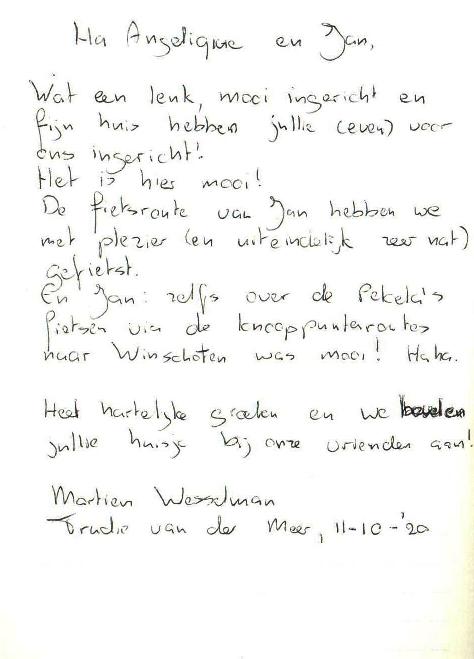 Ha Angelique en Jan,
Wat een leuk, mooi ingericht en
fijn huis hebben jullie (even) voor
ons ingericht!
Het is hier mooi!
De fietsroute van Jan hebben we
met plezier (en uiteindelijk zeer nat)
gefietst.
En Jan: zelfs over de Pekela's
fietsen via de knooppuntenroutes
naar Winschoten was mooi! Haha.
Heel hartelijke groeten en we bevelen
jullie huisje bij onze vrienden aan!
Martien Wesselman
Trudie van der Meer, 11-10-'20